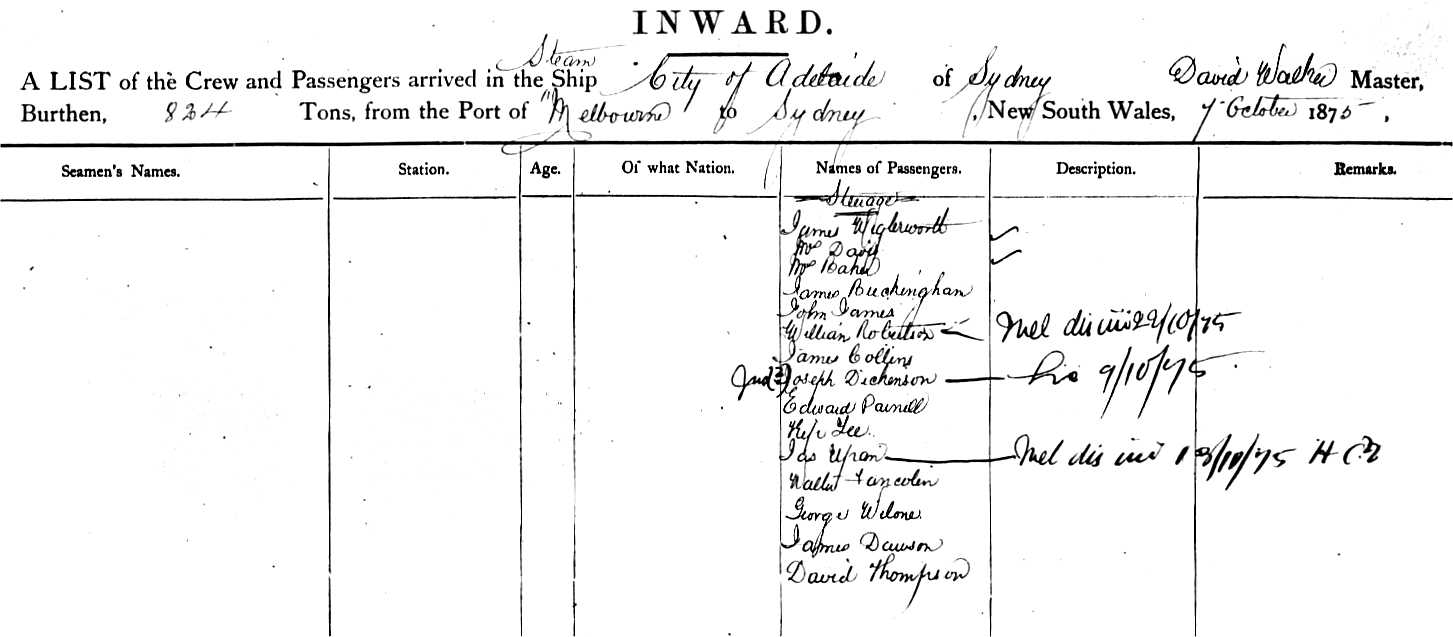 INWARD.
Steam
A LIST of the Crew and Passengers arrived in the Ship City of Adelaide of Sydney David Walker Master,
Burthen, 824 Tons, from the Port of Melbourne to Sydney, New South Wales, 7 October 1875,
Seamen's Names. Station. Age. Of what Nation. Names of Passengers. Description. Remarks.
Steerage
James Wiglerworth
Mrs Davis
Mrs Baker
James Buckingham
John James
William Robertson Mel dis 22/10/75
James Collins
Joseph Dickenson 9/10/75
Edward Parnell
Lee
Jas Upan Mel dis /10/75 H
Walter
George Wilone
James Dawson
David Thompson